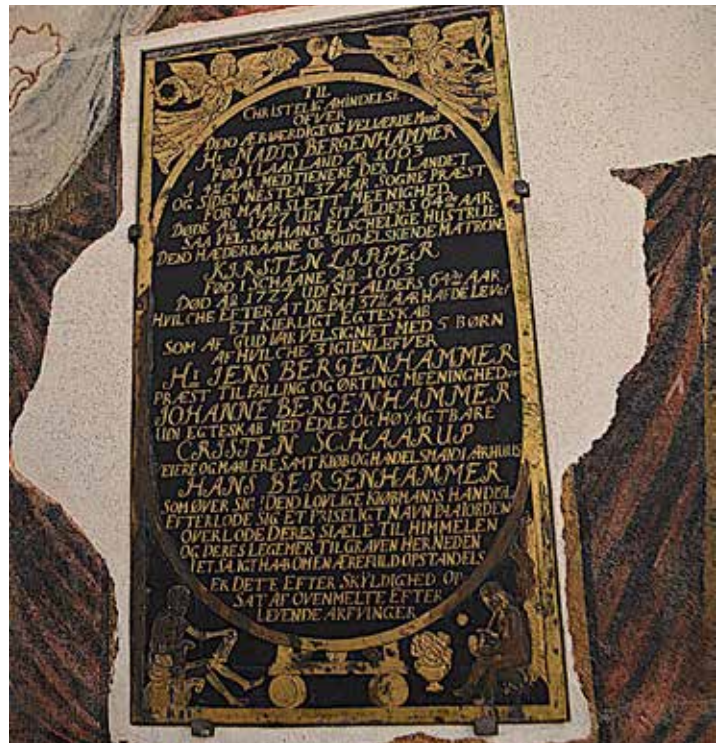 TIL
CHRISTELIG AMINDELSE
OFVER
DEND ÆRVÆRDIGE OG VELLÆRDE Mand
Hr MADTS BERGENHAMMER
FØD I LAALLAND Ao 1663
I 4de AAR MEDTIENERE DER I LANDET
OG SIDEN NESTEN 37 AAR SOGNE PRÆST
FOR MAARSLETT MEENIGHED
DØDE Ao 1727 UDI SIT ALDERS 64de AAR
SAA VEL SOM HANS ELSCHELIGE HUSTRUE
DEND HÆDERBAARNE OG GUD ELSKENDE MATRONE
KIRSTEN LIPPER
FØD I SCHAANE Ao 1663
DØD Ao 1727 UDI SIT ALDERS 64de AAR
HVILCHE EFTER AT DE PAA 37te AAR HAFDE LEVet
ET KIERLIGT EGTESKAB
SOM AF GUD VAR VELSIGNET MED 5 BØRN
AF HVILCHE 3 IGIENLEFVER
Hr JENS BERGENHAMMER
PRÆST TIL FALLING OG ØRTING MEENINGHED
JOHANNE BERGENHAMMER
UDI EGTESKAB MED EDLE OG HØYAGTBARE
CRISTEN SCHAARUP
VEIERE OG MAALERE SAMT KIØB OG HANDELSMAND I AARHUUS
HANS BERGENHAMMER
SOM ØVER SIG I DEND LOVLIGE KIØBMANDS HANDEL
EFTERLODE SIG ET PRISELIGT NAVN PAA JORDEN
OVERLODE DERES SIÆLE TIL HIMMELEN
OG DERES LEGEMER TIL GRAVEN HER NEDEN
I ET SALIGT HAAB OM EN ÆREFULD OPSTANDELS
ER DETTE EFTER SKYLDIGHED OP
SAT AF OVENMELTE EFTER
LEVENDE ARFVINGER